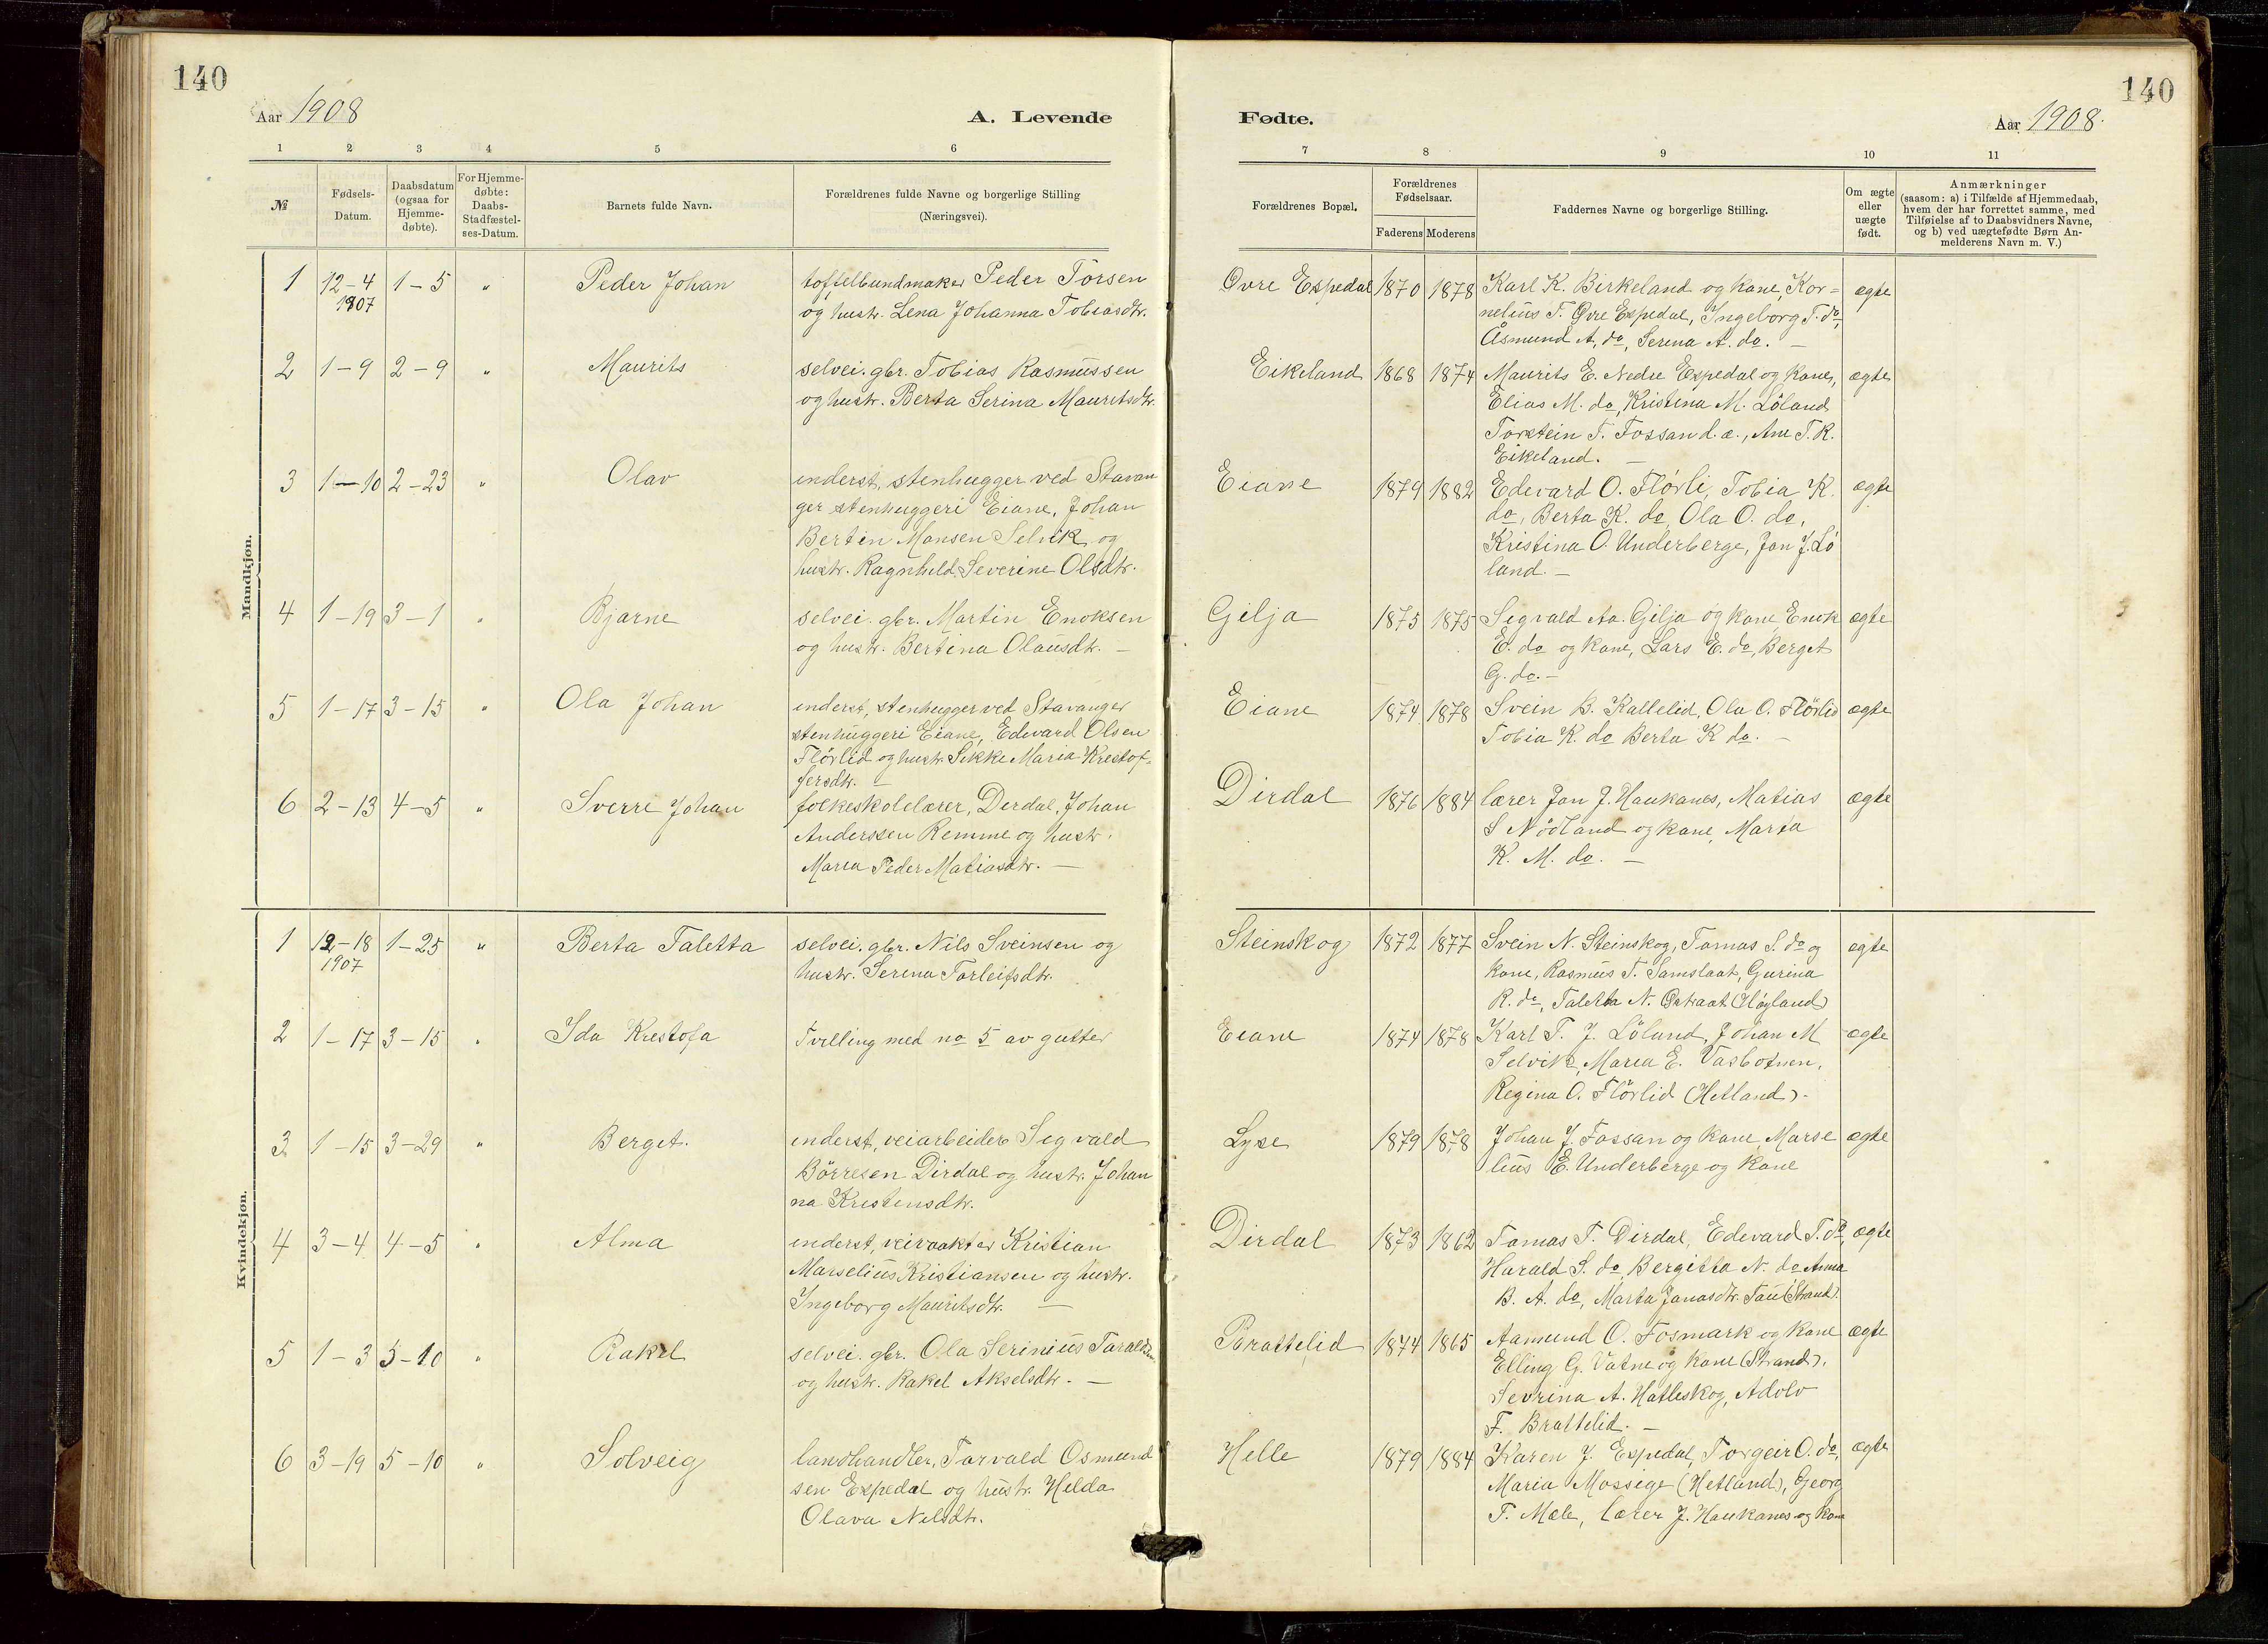 140
Aar 1908
A. Levende
1 2 3 4 5 6
№
Fødsels-
Datum.
Daabsdatum
(ogsaa for
Hjemme-
døbte).
For Hjemme-
døbte:
Daabs-
Stadfæstel-
ses-Datum.
Barnets fulde Navn.
Forældrenes fulde Navne og borgerlige Stilling
(Næringsvei).
Mandkjøn.
1 12-4 1-5 " Peder Johan toffelbundmaker Peder Torsen
1907 og hustr. Lena Johanna Tobiasdtr.
2 1-9 2-9 " Maurits selvei. gbr. Tobias Rasmussen
og hustr. Berta Serina Mauritsdtr.
3 1-10 2-23 " Olav inderst, stenhugger ved Stavan
ger stenhuggeri Eiane, Johan
Bertin Monsen Selvik og
hustr. Ragnhild Severine Olsdtr.
4 1-19 3-1 " Bjarne selvei. gbr. Martin Enoksen
og hustr. Bertina Olausdtr. -
5 1-17 3-15 " Ola Johan inderst, stenhugger ved Stavanger
stenhuggeri Eiane, Edevard Olsen
Flørlid og hustr. Sikke Maria Kristof-
fersdtr. -
6 2-13 4-5 " Sverre Johan folkeskolelærer, Dirdal, Johan
Anderssen Remme og hustr.
Maria Peder Matiasdtr. -
Kvindekjøn.
1 12-18 1-25 " Berta Taletta selvei. gbr. Nils Sveinsen og
1907 hustr. Serina Torleifsdtr.
2 1-17 3-15 " Ida Kristofa Tvilling med no 5 av gutter
3 1-15 3-29 " Berget. inderst, veiarbeider Sigvald
Børresen Dirdal og hustr. Johan
na Kristensdtr.
4 3-4 4-5 " Alma inderst, veivakter Kristian
Marselius Kristiansen og hustr.
Ingeborg Mauritsdtr. -
5 1-3 5-10 " Rakel selvei. gbr. Ola Serinius Taraldsen
og hustr. Rakel Akselsdtr. -
6 3-19 5-10 " Solveig landhandler, Torvald Osmund
sen Espedal og hustr. Hilda
Olava Nilsdtr.
140
Fødte.
Aar 1908.
7 8 9 10 11
Forældrenes Bopæl.
Forældrenes
Fødselsaar.
Faderens Moderens
Faddernes Navne og borgerlige Stilling.
Om ægte
eller
uægte
født.
Anmærkninger
(saasom: a) i Tilfælde af Hjemmedaab,
hvem der har forrettet samme, med
Tilføielse af to Daabsvidners Navne,
og b) ved uægtefødte Børn An-
melderens Navn m. V.)
Øvre Espedal 1870 1878 Karl K. Birkeland og kone, Kor- ægte
nelius T. Øvre Espedal, Ingeborg T. do,
Åsmund A. do, Serina A. do. -
Eikeland 1868 1874 Maurits E. Nedre Espedal og kone, ægte
Elias M. do, Kristina M. Löland
Torstein T. Fossan d. æ., Ane T. R.
Eikeland. -
Eiane 1879 1882 Edevard O. Flørli, Tobia K. ægte
do, Berta K. do, Ola O. do,
Kristina O. Underberge, Jon J. Lö
land. -
Gilja 1875 1875 Sigvald Aa. Gilja og kone Enok ægte
E. do og kone, Lars E. do, Berget
G. do. -
Eiane 1874 1878 Svein B. Kallelid, Ola O. Flørlid ægte
Tobia K. do Berta K do. -
Dirdal 1876 1884 lærer Jon J. Haukanes, Matias ægte
S Nödland og kone, Marta
K. M. do. -
Steinskog 1872 1877 Svein N. Steinskog, Tomas S. do og ægte
kone, Rasmus T. Samslaat, Gurina
R. do, Taletta N. Østraat (Høyland)
Eiane 1874 1878 Karl T. J. Löland, Johan M ægte
Selvik, Maria E. Vasbotnen,
Regina O. Flörlid (Hetland).
Lyse 1879 1878 Johan J. Fossan og kone, Marse ægte
lius E. Underberge og kone
Dirdal 1873 1862 Tomas T. Dirdal, Edevard T. do, ægte
Harald S. do, Bergitta N. do Anna
B. A. do, Marta Jonasdtr. Tau (Strand).
Brattelid 1874 1865 Aamund O. Fosmark og kone ægte
Elling G. Vatne og kone (Strand),
Sevrina A. Hatleskog, Adolv
F. Brattelid. -
Helle 1879 1884 Karen J. Espedal, Torgeir O. do, ægte
Maria Mossige (Hetland), Georg
T. Mæle, lærer J. Haukanes og kone